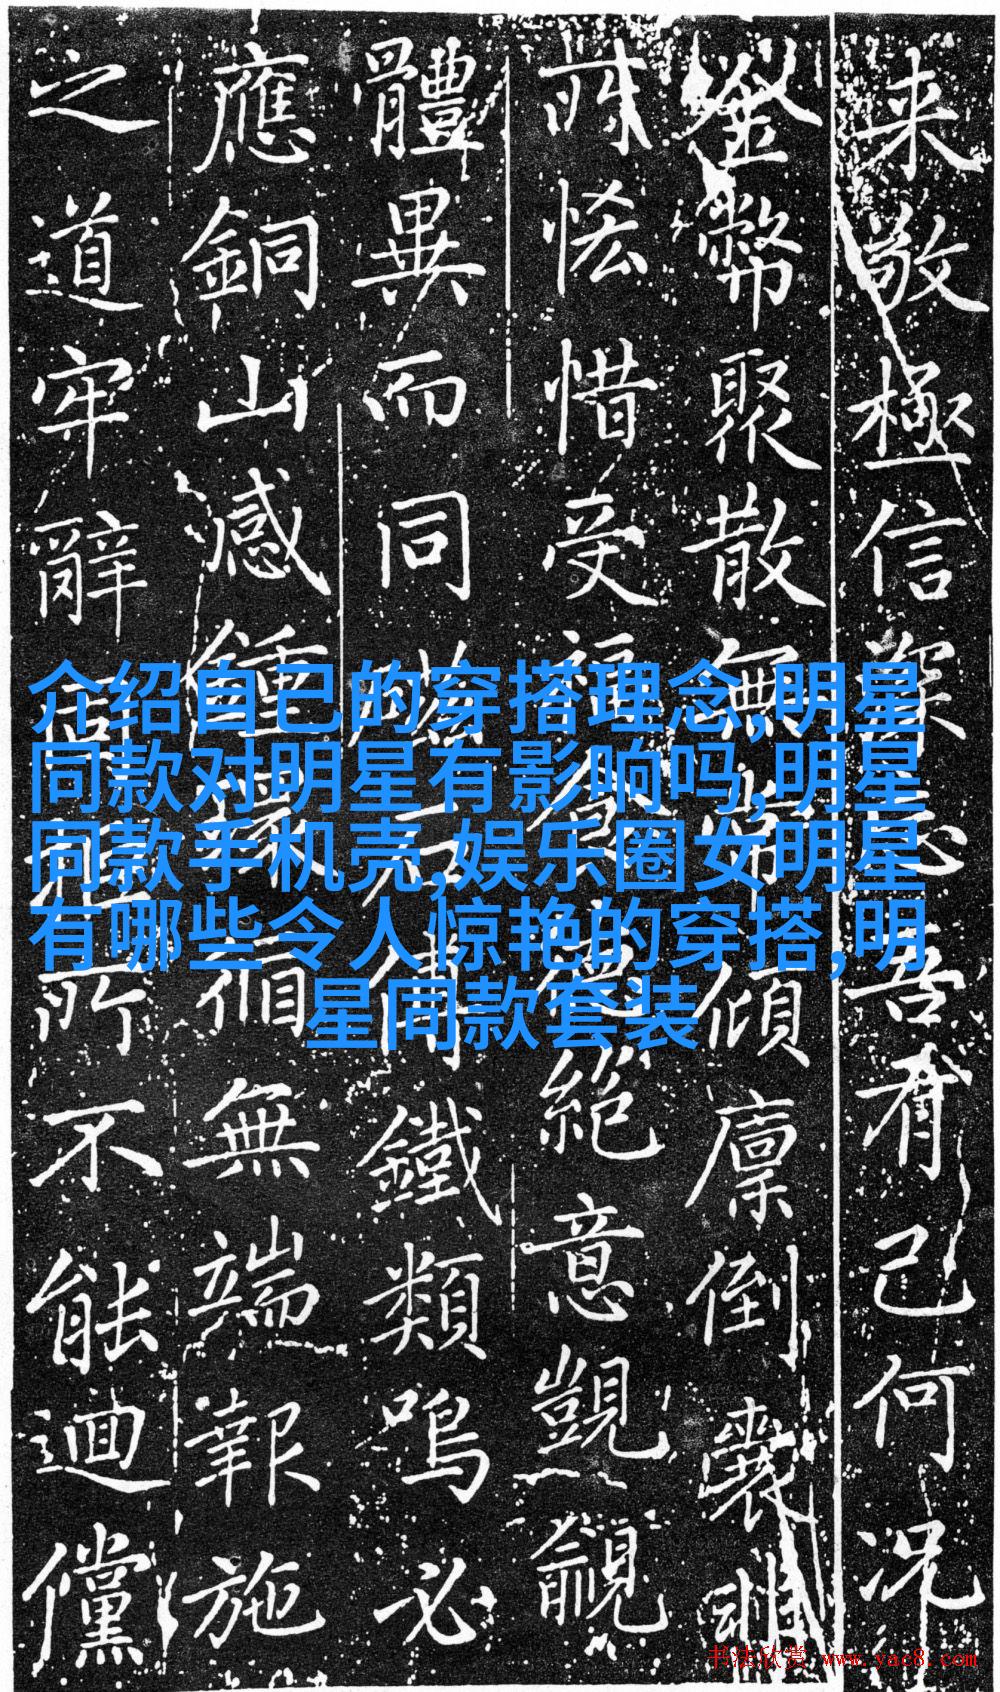 来敬極信
吾有己何况
金幣聚散無
傾廩倒裳
惜受
絕意觊觎
體異而同
鐵類鳴必
應銅山感鍾
無端報施
之道牢辭
所不能迴儻
介绍自己的穿搭理念,明星
同款对明星有影响吗,明星
同款手机壳,娱乐圈女明星
有哪些令人惊艳的穿搭,明
星同款套装
书法欣赏 www.yac8.com